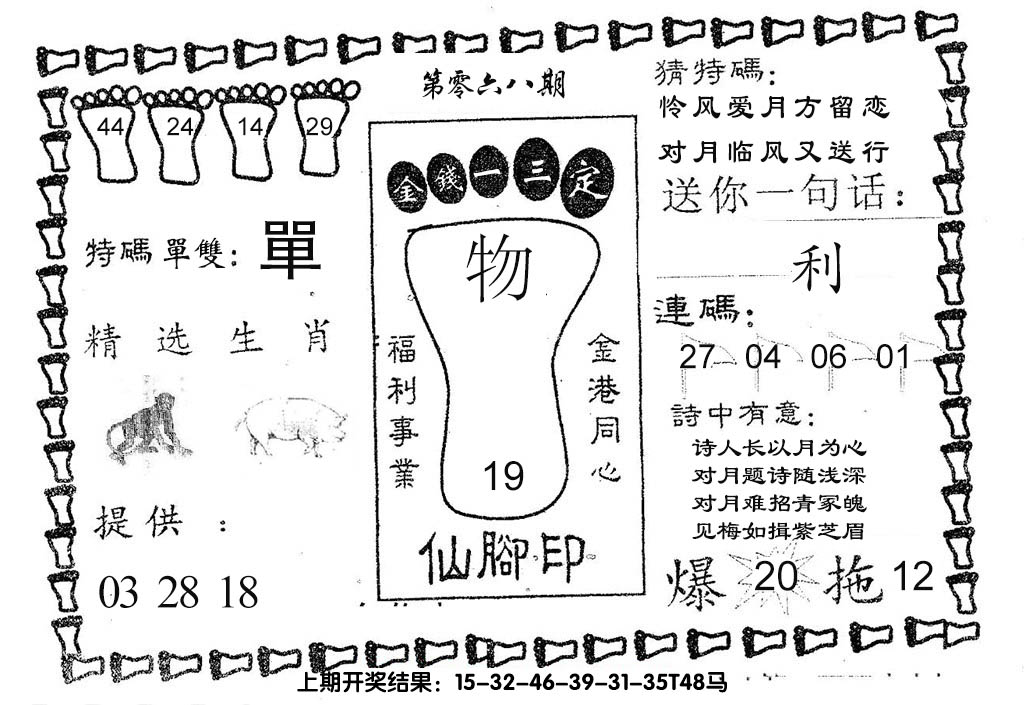 第零六八期
44 24 14 29
特碼單雙: 單
精选生肖
提供:
03 28 18
金錢一三定
物
福利事業
金港同心
19
仙腳印
猜特碼:
怜风爱月方留恋
对月临风又送行
送你一句话:
利
連碼:
27 04 06 01
詩中有意:
诗人长以月为心
对月题诗随浅深
对月难招青冢魄
见梅如揖紫芝眉
爆 20 拖 12
上期开奖结果: 15-32-46-39-31-35T48马